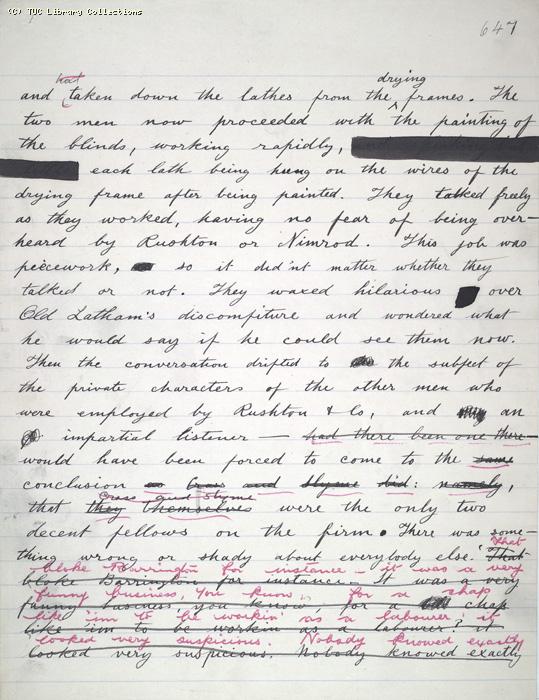 (C) TUC Library Collections
647
hat drying
and taken down the lathes from the ^ frames. The
two men now proceeded with the painting of
the blinds, working rapidly,
each lath being hung on the wires of the
drying frame after being painted. They talked freely
as they worked, having no fear of being over-
heard by Rushton or Nimrod. This job was
piecework, so it did'nt matter whether they
talked or not. They waxed hilarious over
Old Latham's discomfiture and wondered what
he would say if he could see them now.
Then the conversation drifted to the subject of
the private characters of the other men who
were employed by Rushton & Co, and an
impartial listener — had there been one there —
would have been forced to come to the same
conclusion as Crass and Slyme did: namely,
Crass and Slyme
that they themselves were the only two
decent fellows on the firm. There was some-
That
thing wrong or shady about everybody else. That
bloke Barrington for instance - it was a very
bloke Barrington for instance - It was a very
funny business, you know, for a chap
funny business, you know, for a chap
like 'im to be workin' as a labourer? it
like 'im to be workin' as a labourer? it
looked very suspicious. Nobody knowed exactly
looked very suspicious. Nobody knowed exactly